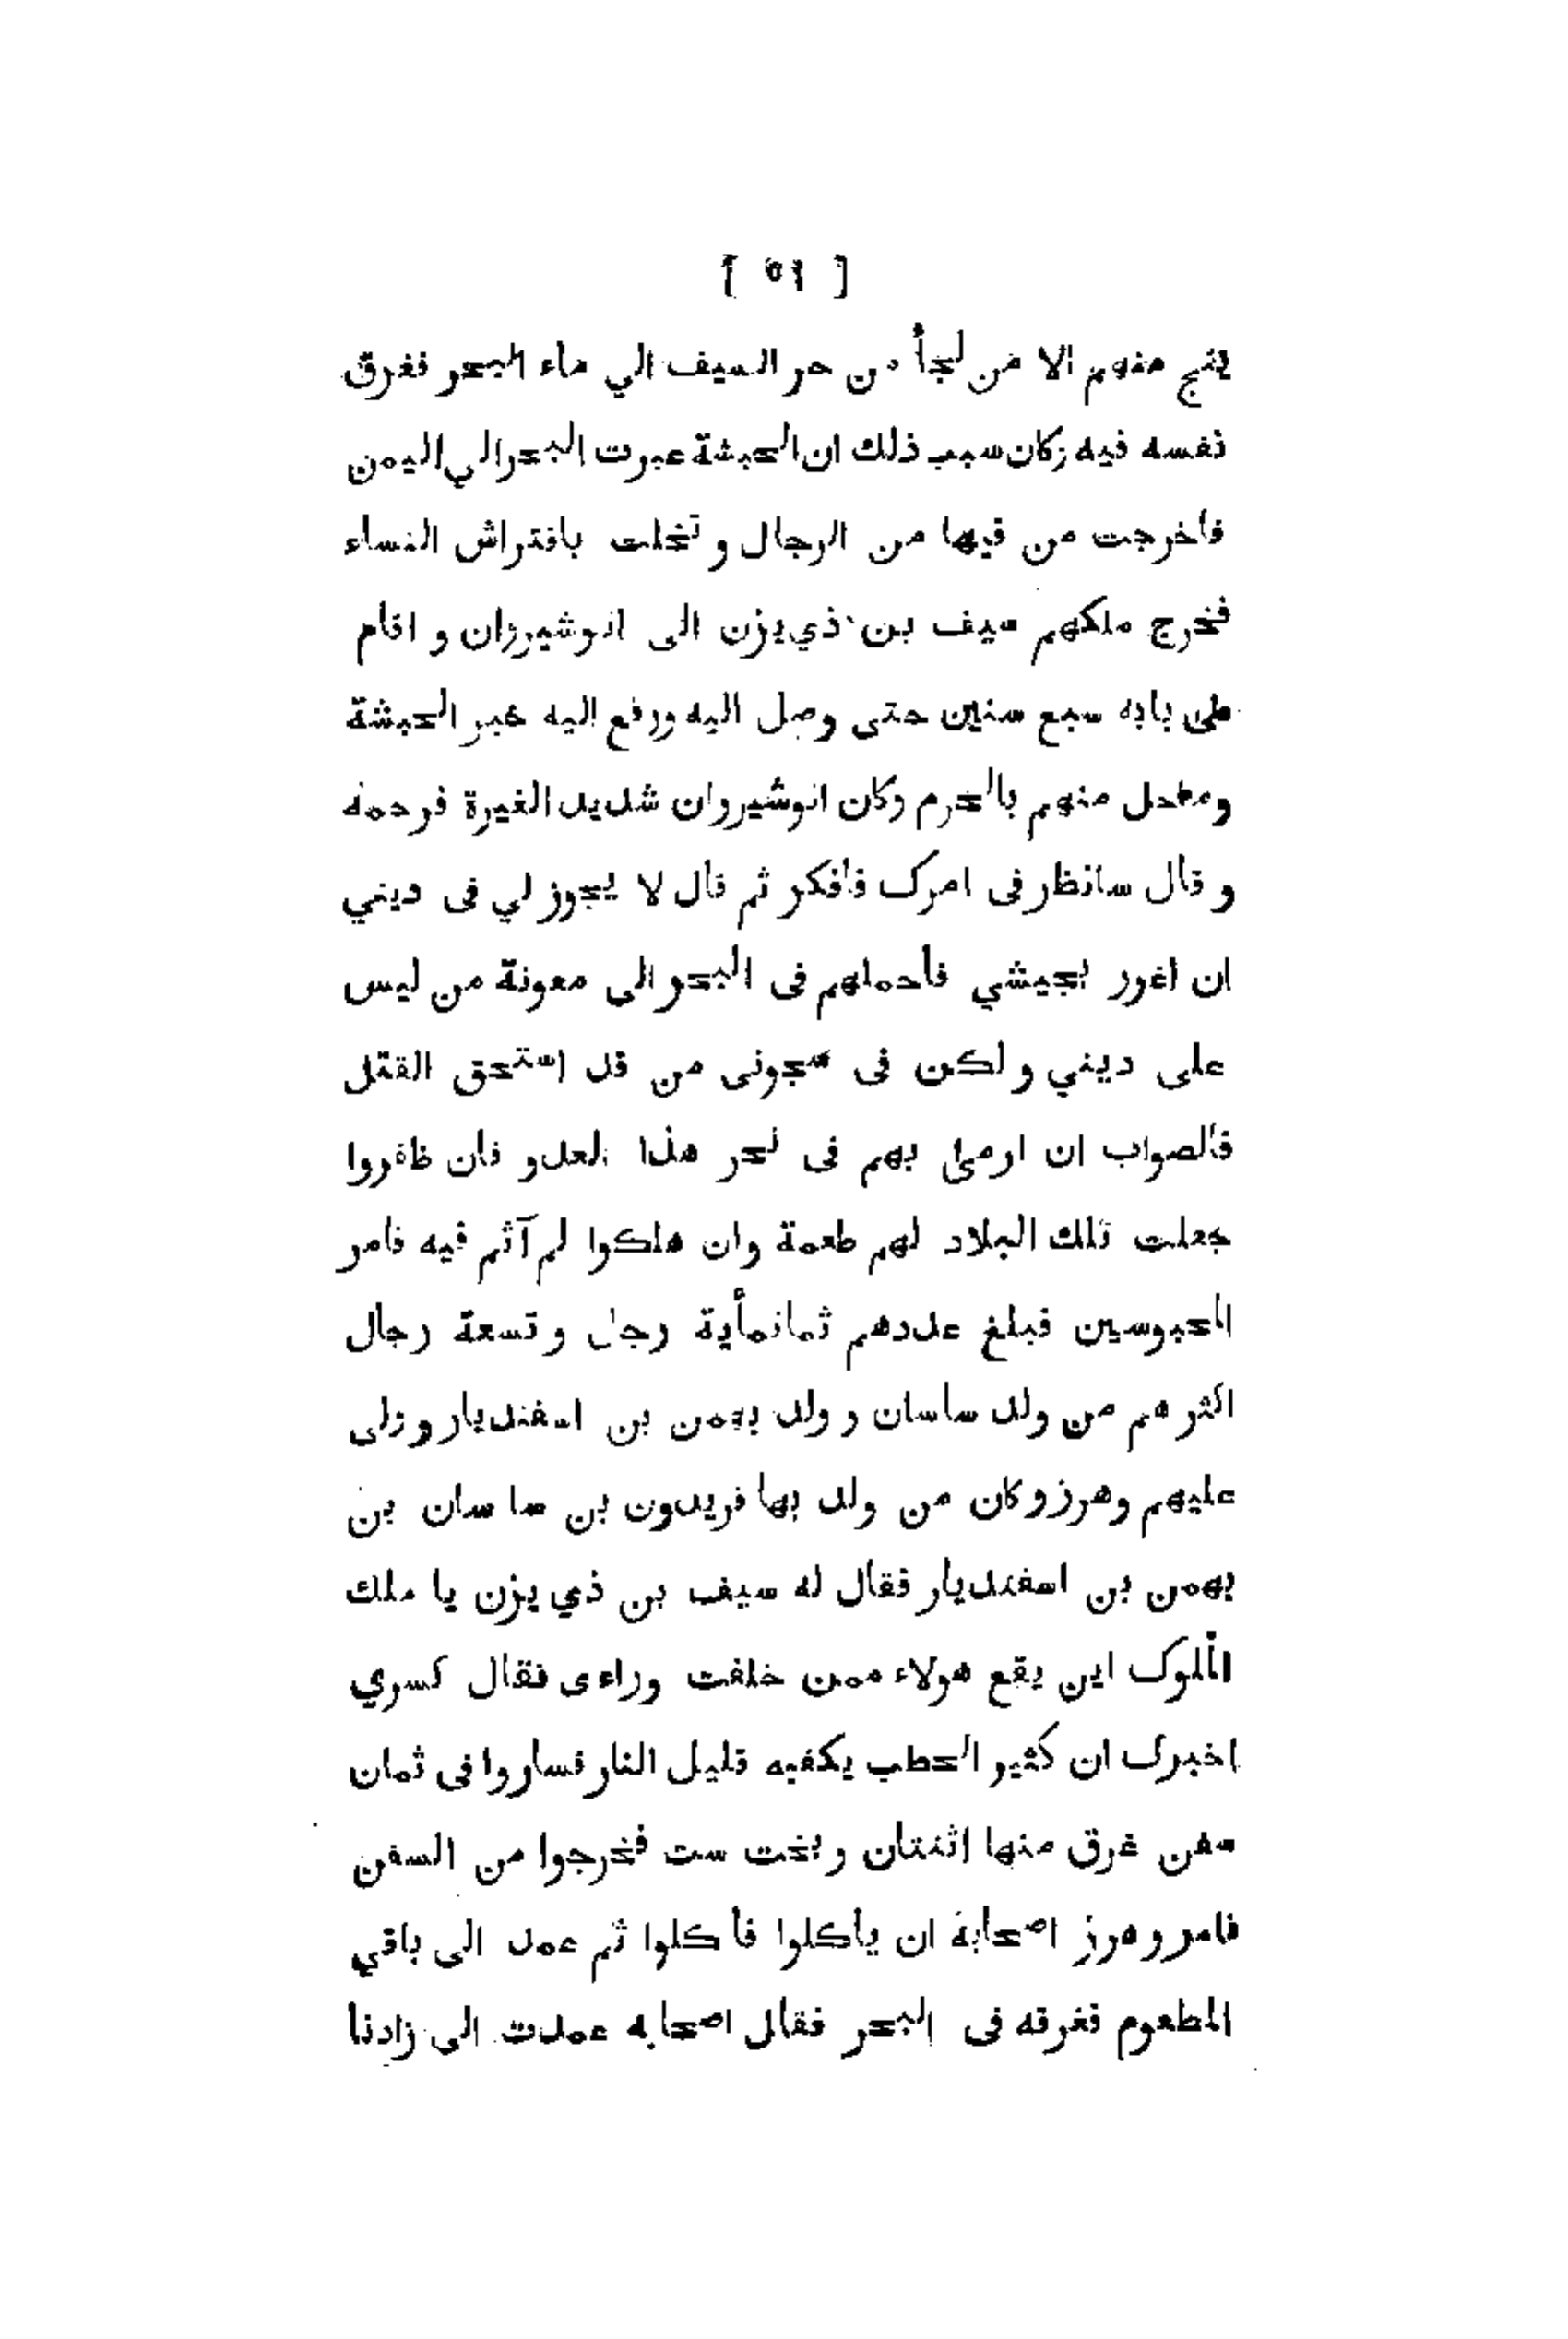 [ ٥٤ ]
ينج منهم الا من لجأ من حر السيف الي ماء البحر فغرق
نفسه فيه وكان سبب ذلك ان الحبشة عبرت البحر الي اليمن
فاخرجت من فيها من الرجال و تخلت بافتراش النساء
فخرج ملكهم سيف بن ذي يزن الى انوشيروان و اقام
على بابه سبع سنين حتى وصل اليه ورفع اليه خبر الحبشة
وماحل منهم بالحرم وكان انوشيروان شديد الغيرة فرحمه
و قال سانظر فى امرك فافكر ثم قال لا يجوز لي فى ديني
ان اغرر بجيشي فأحملهم فى البحر الى معونة من ليس
على ديني و لكن فى سجونى من قد استحق القتل
فالصواب ان ارمئ بهم فى نحر هذا العدو فان ظفروا
جعلت تلك البلاد لهم طعمة وان هلكوا لم آثم فيه فامر
المحبوسين فبلغ عددهم ثمانمأية رجل و تسعة رجال
اكثر هم من ولد ساسان و ولد بهمن بن اسفنديار و ولى
عليهم وهرز وكان من ولد بها فريدون بن سا سان بن
بهمن بن اسفنديار فقال له سيف بن ذي يزن يا ملك
الملوك اين يقع هولاء ممن خلفت وراءى فقال كسري
اخبرك ان كثير الحطب يكفيه قليل النار فساروا فى ثمان
سفن غرق منها اثنتان و بخت ست فخرجوا من السفن
فامر وهرز اصحابه ان ياكلوا فأ كلوا ثم عمد الى باقي
المطعوم فغرقه فى البحر فقال اصحابه عمدت الى زادنا